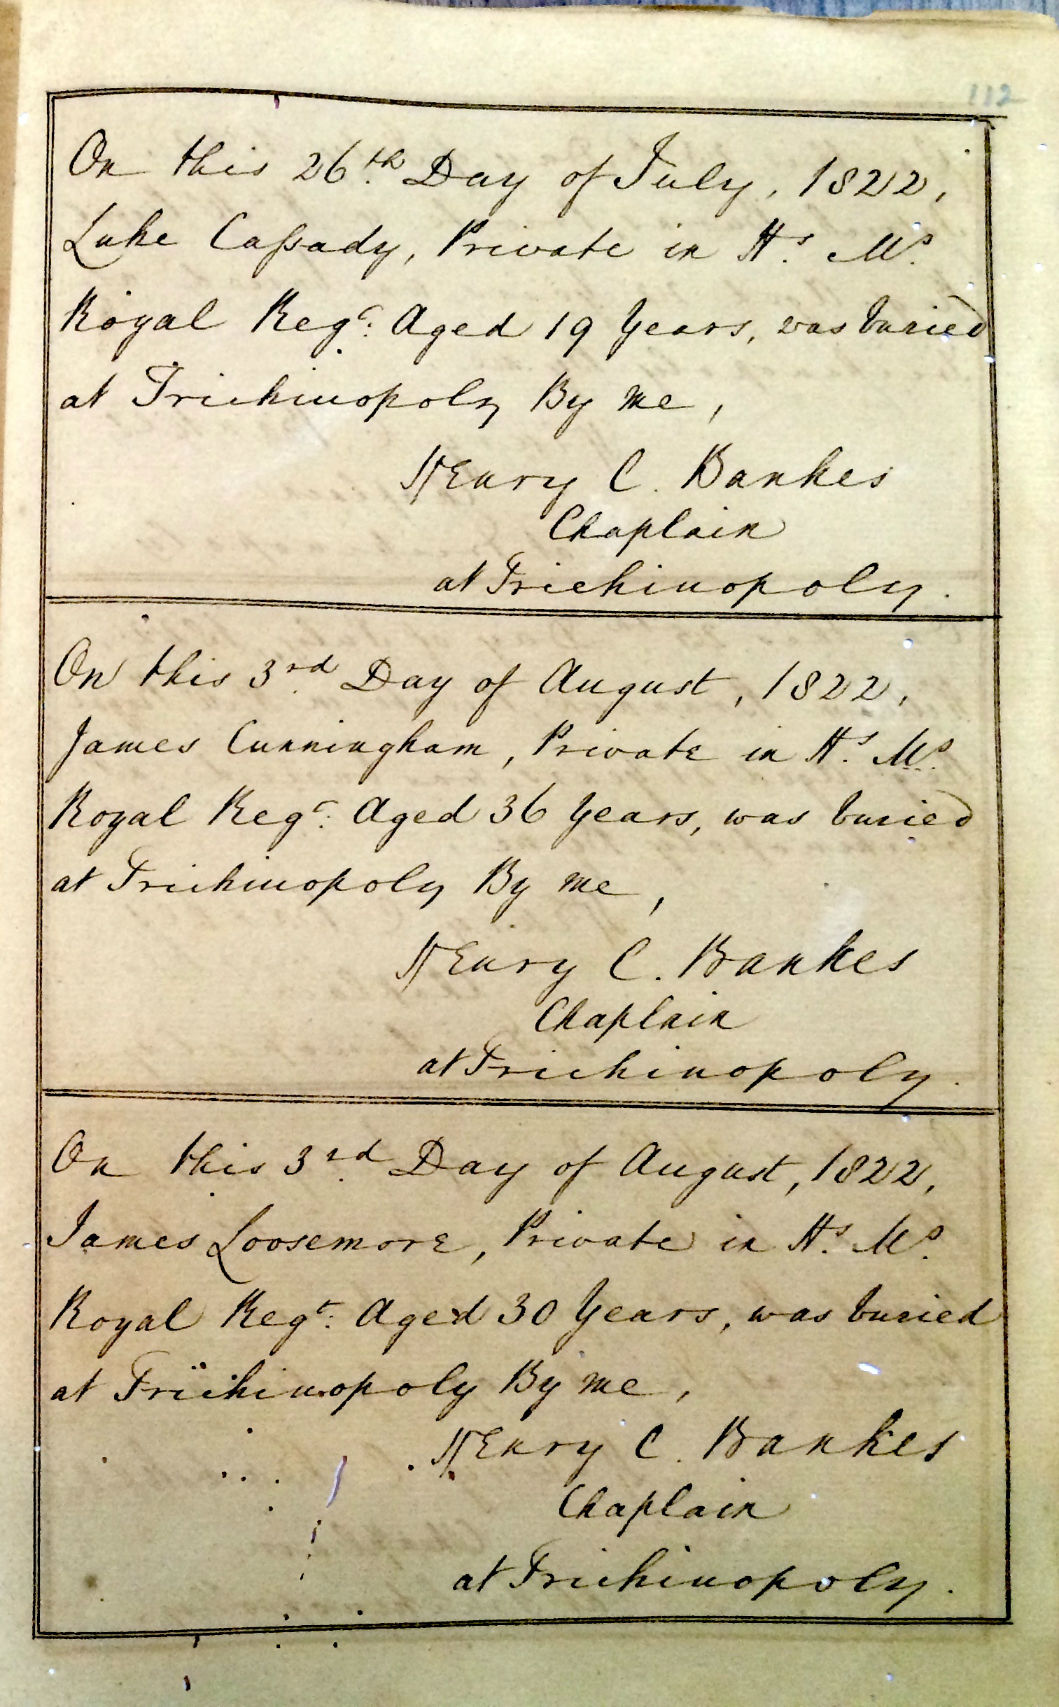 112
On this 26th Day of July, 1822,
Luke Caſsady, Private in Hs. Ms.
Royal Regt: Aged 19 Years, was buried
at Trichinopoly By me,
Henry C. Bankes
Chaplain
at Trichinopoly.
On this 3rd Day of August, 1822,
James Cunningham, Private in Hs. Ms.
Royal Regt: Aged 36 Years, was buried
at Trichinopoly By me,
Henry C. Bankes
Chaplain
at Trichinopoly.
On this 3rd Day of August, 1822,
James Loosemore, Private in Hs. Ms.
Royal Regt: Aged 30 Years, was buried
at Trichinopoly By me,
Henry C. Bankes
Chaplain
at Trichinopoly.